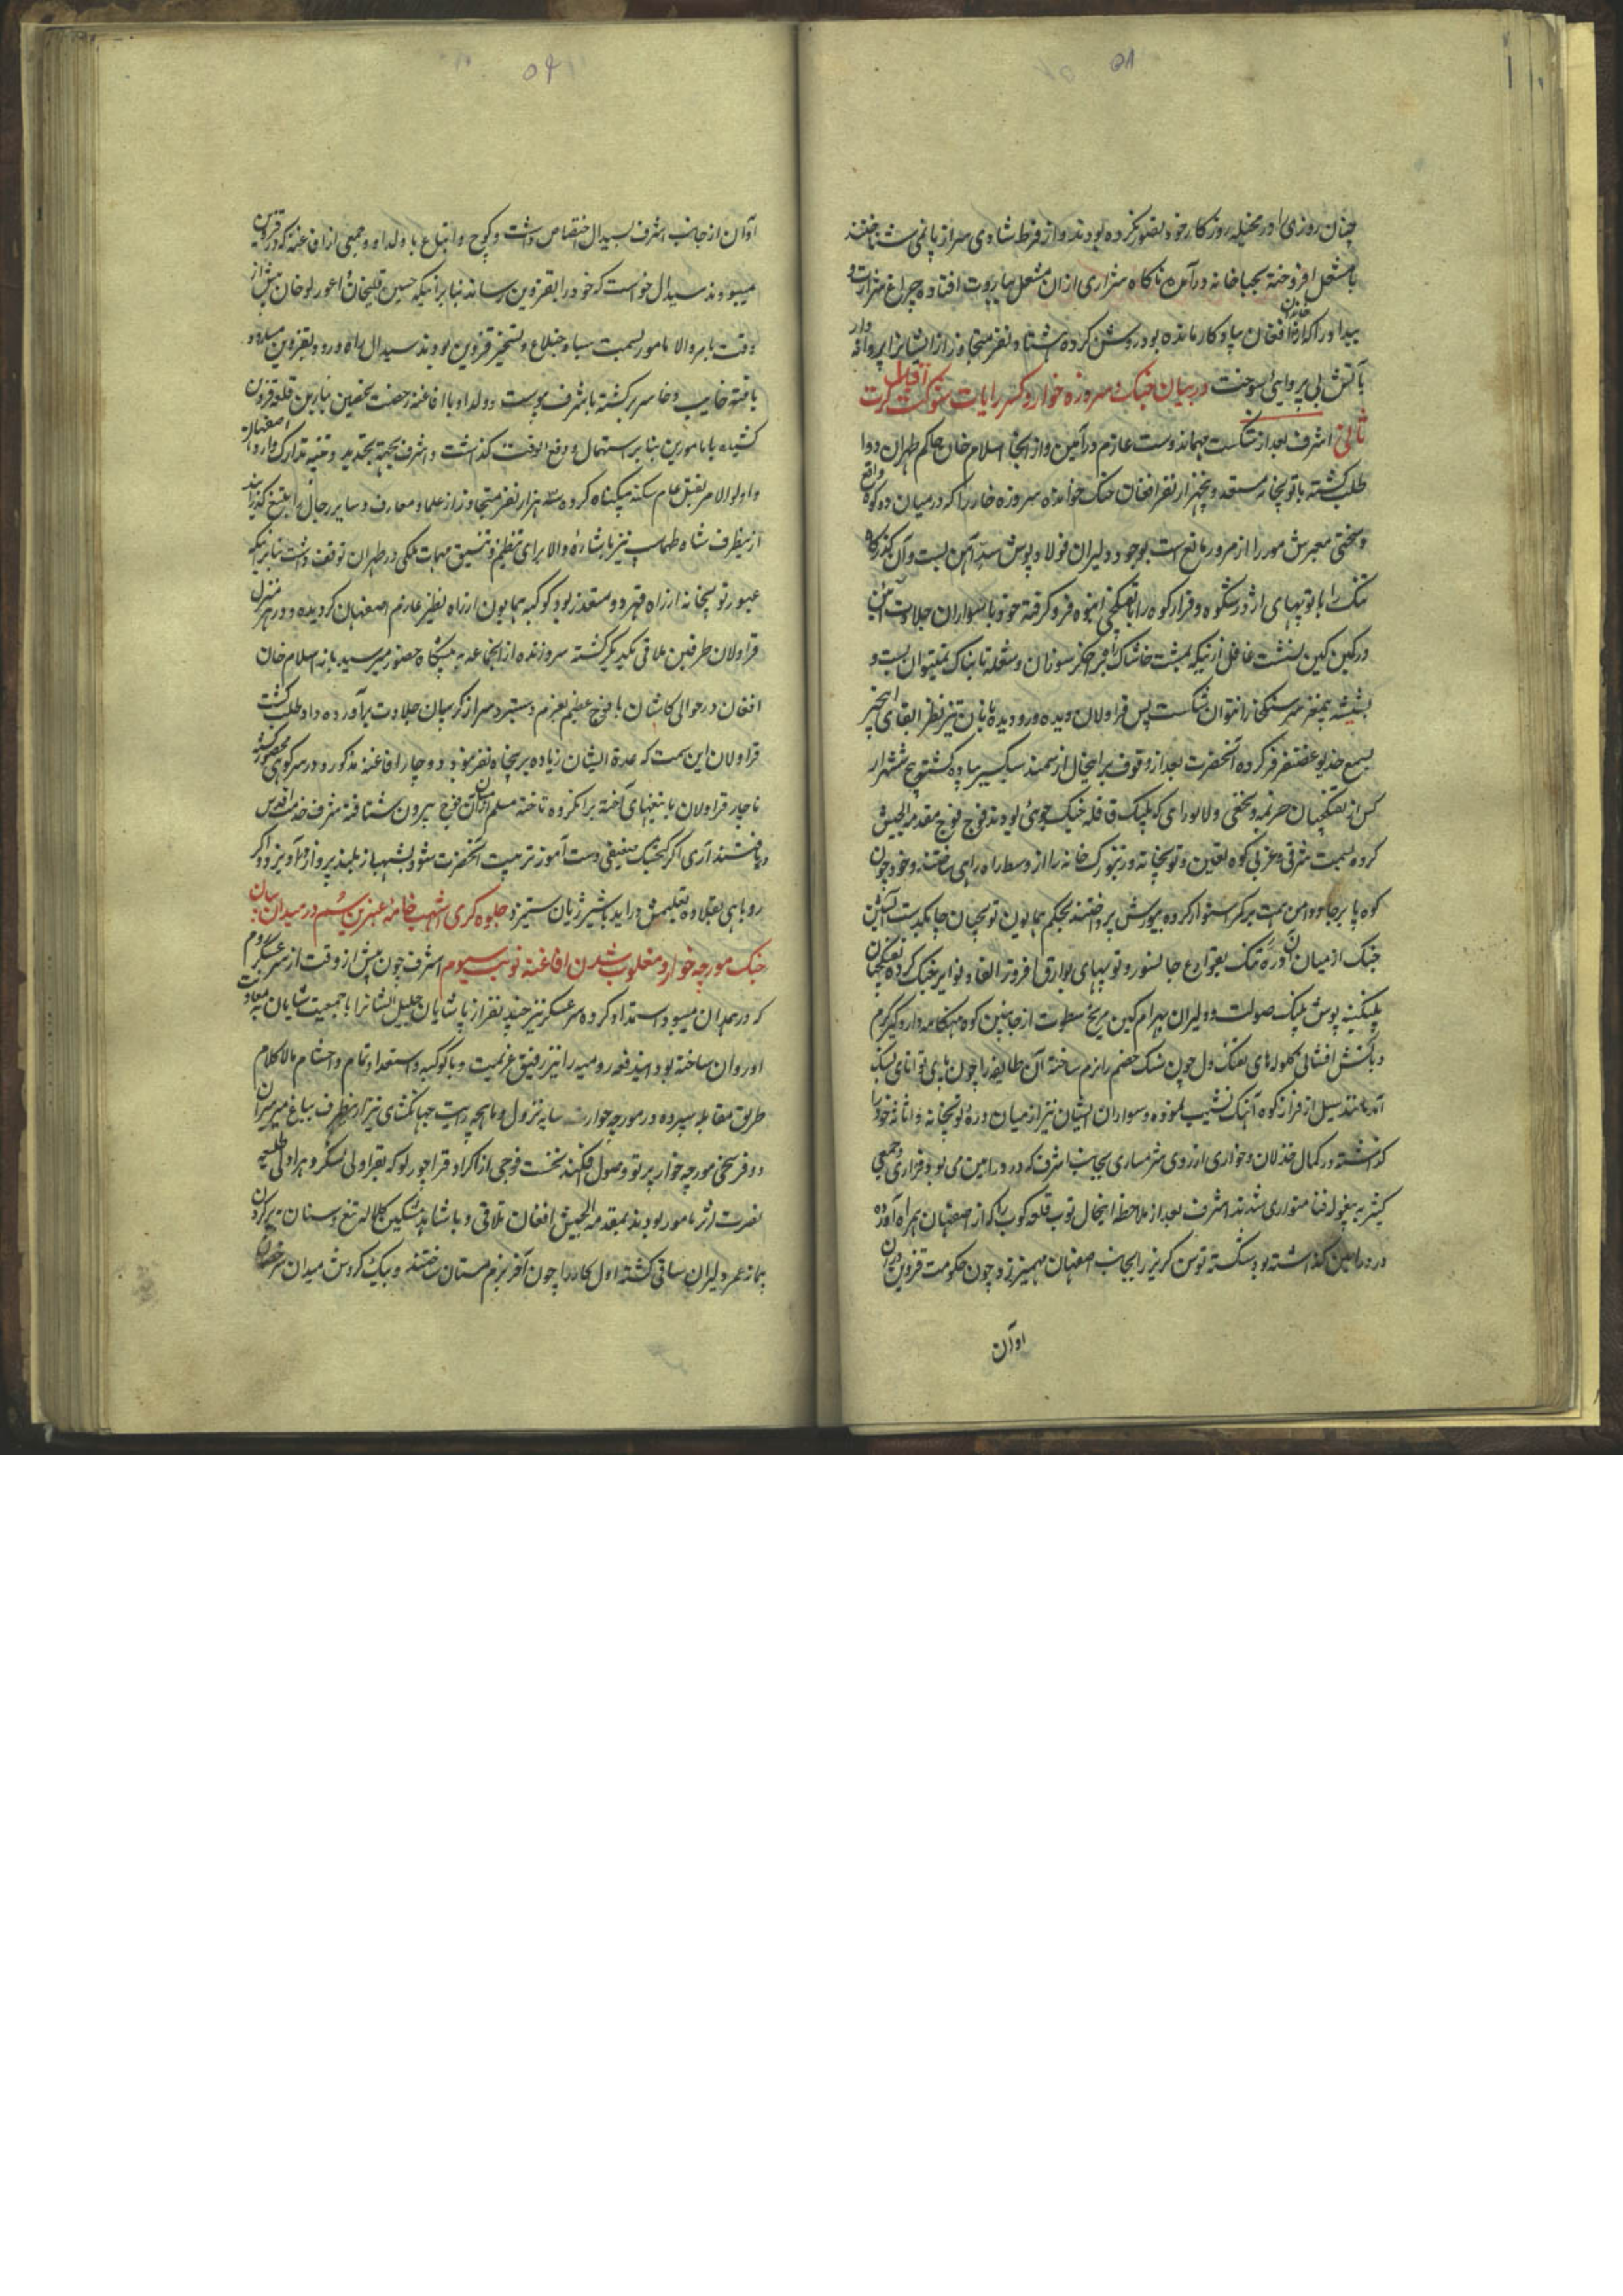 ۵۸
چنان روزی را در مخیله روزکار خود تصور نکرده بودند و از فرط شادی سر از پا نمی شناختند
با مشعل افروخته بجباخانه درآمده ناکاه شراری ازان مشعل بباروت افتاده چراغ
بیداد را که از افغان سیاه کار مانده بود روشن کرده هشتاد نفر متجاوز از ایشانرا پروانه وار
بآتش بی پروایی بسوخت در بیان جنک سردره خوار و کسر رایات شوکت کرت
ثانی اشرف بعد از شکست مهماندوست عازم ورامین و از آنجا اسلام خان حاکم طهران را
طلب کشته با توپخانه مستعد و پنجهزار نفر افغان جنک خواه سردره خار را که در میان دو کوه واقع
و سختی معبرش مور را از مرور مانع است بوجود دلیران فولاد پوش سد آهن بست و آن کذرکاه
تنک را با توپهای اژدر شکوه و فراز کوه را با تفنکچی انبوه فرو کرفته خود با سواران جلادت آئین
در کمین کین نشست غافل از اینکه بمشت خاشاک راه بر اخکر سوزان و شعله تابناک نمیتوان بست و
بشیشه بیمغز سر سنکخارا نتوان شکست پس قراولان دیده ور و دیده بانان تیز نظر القای این خبر
بسمع خدیو غضنفر فر کرده آنحضرت بعد از وقوف بر اینحال از سمند سبکسیر پیاده کشته پنج ششهزار
کس از تفنکچیان
کرده بسمت شرقی و غربی کوه تعیین و توپخانه و زنبورک خانه را از وسط راه راهی ساختند و خود چون
کوه پا برجا و دامن همت بر کمر استوار کرده بیورش پرداختند بحکم همایون توپچیان چابکدست آتشین
جنک از میان آن دره تنک بقوارع جانسوز و توپهای بوارق افروز القاد نوایر جنک کرده تفنکچیان
پلنکینه پوش پلنک صولت و دلیران بهرام کین مریخ سطوت از جانبین کوه هنکامه دار و کیر کرم
و بآتش افشانی کلوله های تفنک دل چون سنک خصم را نرم ساخته آن طایفه را چون پای توانائی بسنک
آمد مانند سیل از فراز کوه آهنک نشیب نموده و سواران ایشان نیز از میان دره توپخانه و اثاثه خود را
کذاشته در کمال خذلان و خواری از روی شرمساری بجانب اشرف که در ورامین می بود فراری و جمعی
کثیر به بیغوله فنا متواری شدند اشرف بعد از ملاحظه اینحال توپ قلعه کوب را که از اصفهان همراه آورده
در ورامین کذاشته بود شکسته توسن کریز را بجانب اصفهان مهمیز زد و چون حکومت قزوین در آن
اوان
۵۹
اوان از جانب اشرف بسیدال اختصاص داشت و کوچ و اتباع با ولد او و جمعی از افاغنه که در قزوین
میبودند سیدال خواست که خود را بقزوین رساند بنا بر اینکه حسین قلیخان اعورلو خان پیش از
وقت بامر والا مامور بسمت سیاه و تسخیر قزوین بودند سیدال راه ورود بقزوین مسدود
یافته خایب و خاسر برکشته باشرف پیوست و ولد او با افاغنه رخصت
کشته با مامورین بنابر استهمال و دفع الوقت کذاشت و اشرف بجهة تجدید و تهیه تدارک وارد اصفهان
و اول الامر بقتل عام سکنه بیکناه کرده سه هزار نفر متجاوز از علما و معارف و سایر رجال را بتیغ کذرانیدند
ازینطرف شاه طهماسب نیز باشارهٔ والا برای تنظیم و تنسیق مهمات ملکی در طهران توقف داشت بنا بر اینکه
عبور توپخانه از راه قهرود متعذر بود کوکبه همایون از راه نطنز عازم اصفهان کردیده و در هر منزل
قراولان طرفین ملاقی یکدیکر کشته سر و زنده از انجماعه به پیشکاه حضور میرسید باز اسلام خان
افغان در حوالی کاشان با فوج عظیم بعزم دستبرد سر از کریبان جلادت برآورده داوطلب کشت
قراولان این سمت که عدة ایشان زیاده بر پنجاه نفر نبود دوچار افاغنه مذکور و در سر کوهی محصور کشته
ناچار قراولان با تیغهای آخته بر آنکروه تاخته سلم از میان آن فوج بیرون شتافته شرف خدمت اقدس
دریافتند آری اکر کنجشک ضعیفی دست آموز تربیت آنحضرت شود بشهباز بلند پرواز در آویزد و اکر
روباهی بقلاده تعلیمش در آید با شیر ژیان ستیزد جلوه کری اشهب خامه عنبرین سم در میدان بیان
جنک مورچه خوار و مغلوب شدن افاغنه نوبت سیوم اشرف چون پیش از وقت از سرعسکر روم
که در همدان میبود استمداد کرده سر عسکر نیز چند نفر از پاشایان جلیل الشانرا با جمعیت شایان بمعاونت
او روان ساخته بود ایندفعه رومیه را نیز رفیق عزیمت و با کوکبه و استعداد تمام و احتشام مالاکلام
طریق مقابله سپرده در مورچه خوار سایه نزول و ماهچه رایت جهانکشای نیز ازینطرف بباغ میر میران
دو فرسخی مورچه خوار پرتو وصول افکند نخست فوجی از اکراد قراچورلو که بقراولی لشکر و هراولی طلیعه
نصرت اثر مامور بودند بمقدمة الجیش افغان تلاقی و با شاهد مشکین کلاله تیغ و سنان
بیمانه عمر دلیران ساقی کشته اول کار را چون آخر بزم مستان ساختند و بیک کردش میدان